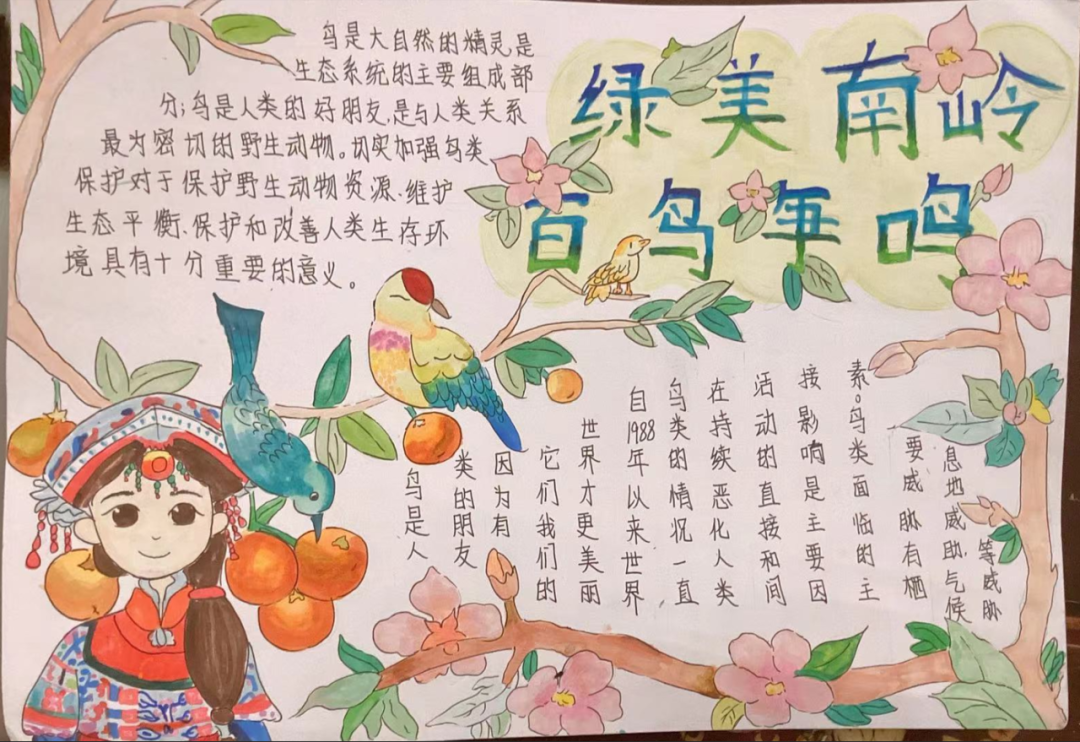 绿美南岭
百鸟争鸣
鸟是大自然的精灵是
生态系统的主要组成部
分;鸟是人类的好朋友,是与人类关系
最为密切的野生动物。切实加强鸟类
保护对于保护野生动物资源、维护
生态平衡、保护和改善人类生存环
境具有十分重要的意义。
鸟是人
类的朋友
因为有
它们我们的
世界才更美丽
自1988年以来世界
鸟类的情况一直
在持续恶化人类
活动的直接和间
接影响是主要因
素。鸟类面临的主
要威胁有栖
息地威助气候
等威胁